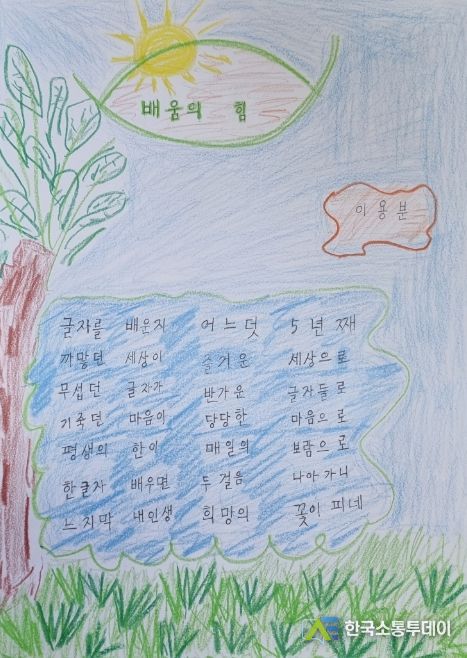 배움의 힘
이용분
글자를 배운지 어느덧 5년째
까망던 세상이 즐거운 세상으로
무섭던 글자가 반가운 글자들로
기죽던 마음이 당당한 마음으로
평생의 한이 매일의 보람으로
한글자 배우면 두걸음 나아가니
느지막 내인생 희망의 꽃이 피네
한국소통투데이